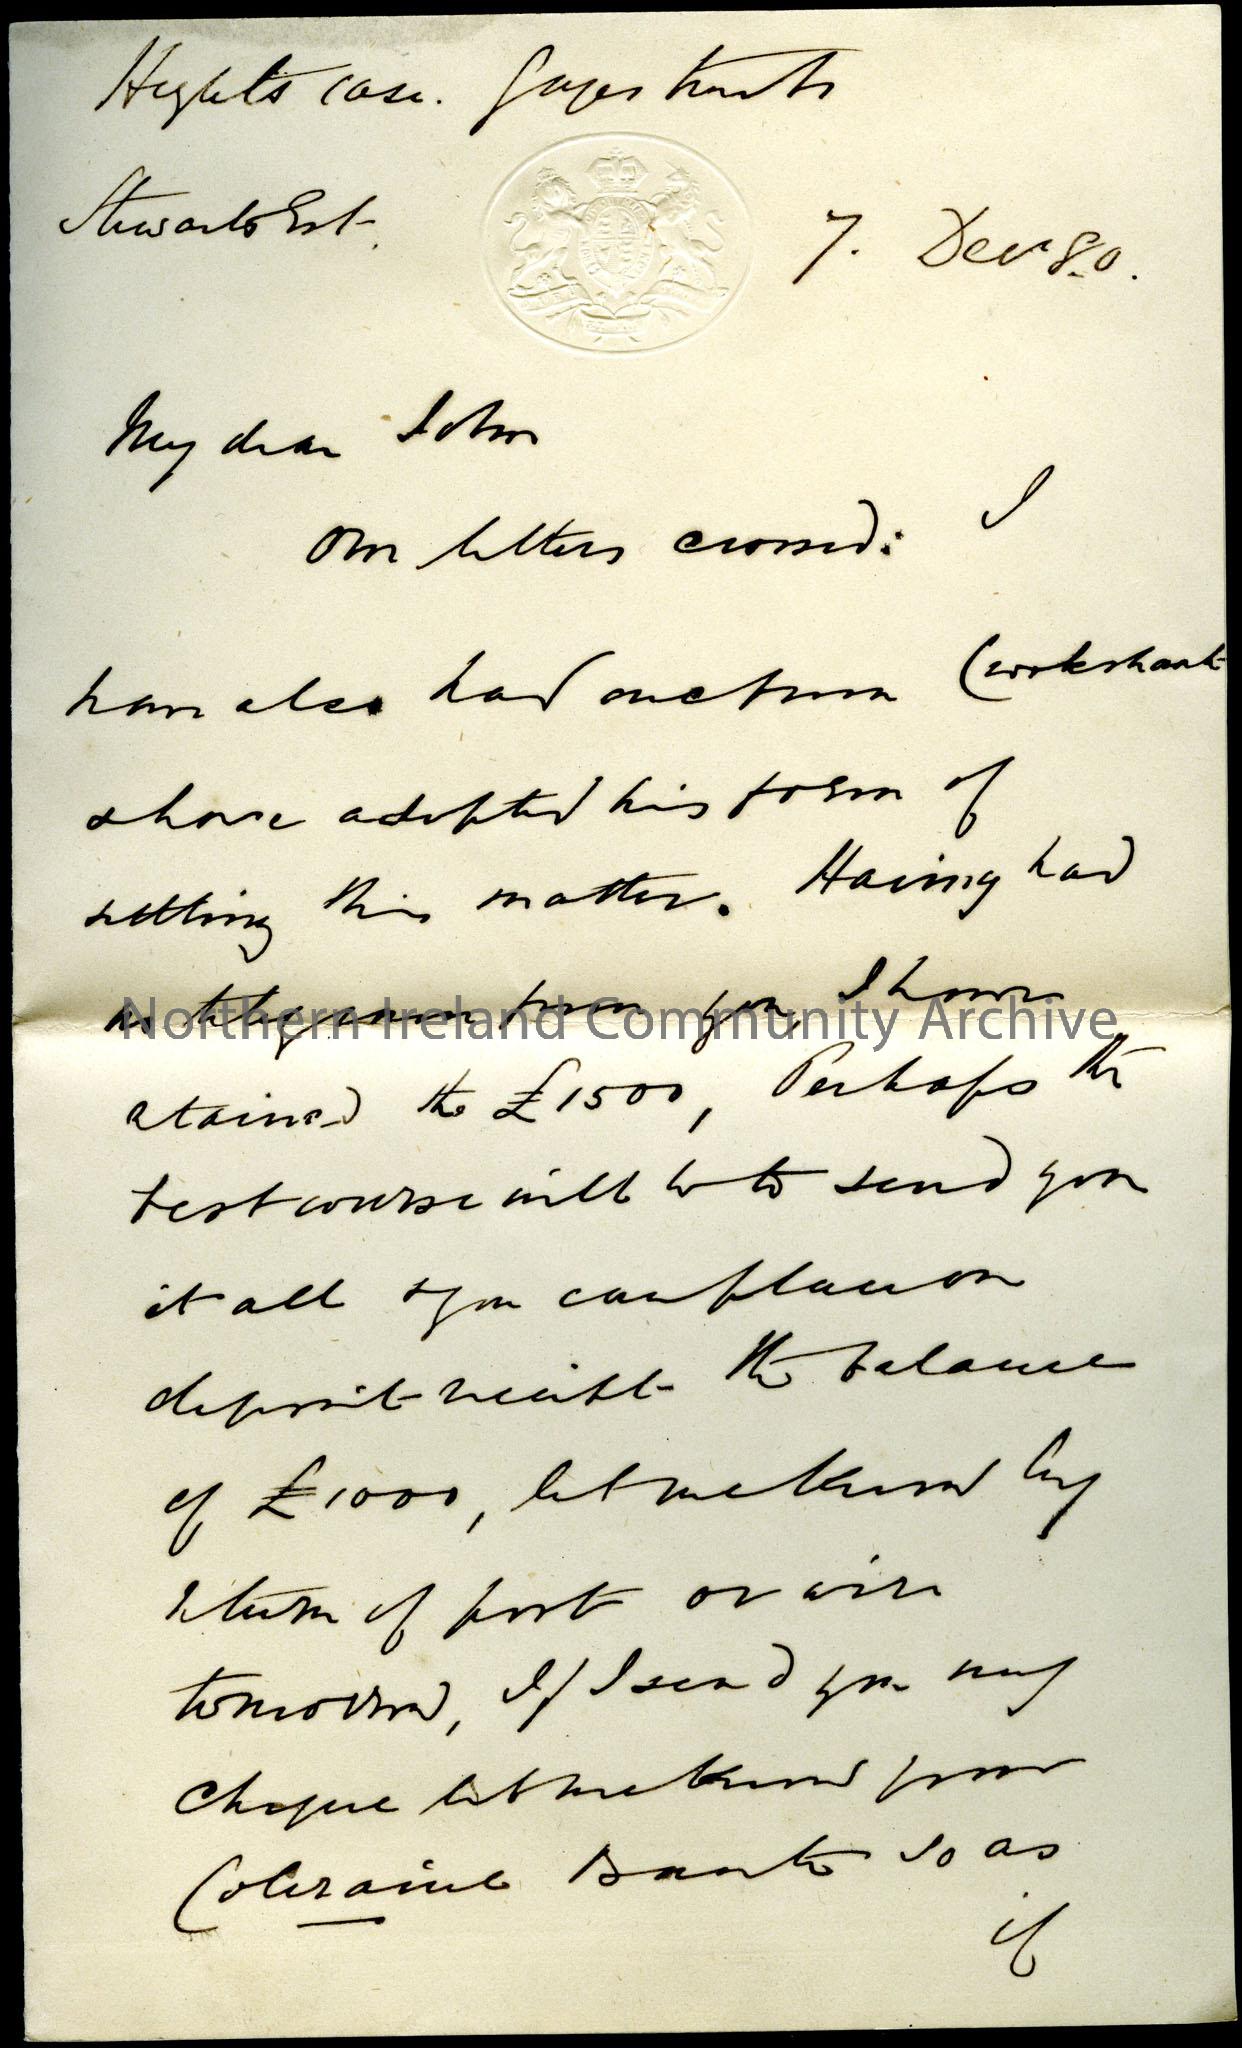 Stewarts Est.
7. Decr 80.
My dear John
Our letters crossed: I
have also had one from Cruikshank
& have adopted his form of
settling this matter. Having had
no telegram from you, I have
retained the £1500, Perhaps the
best course will be to send you
it all & you can place on
deposit receipt the balance
of £1000, let me know by
return of post or wire
tomorrow, If I send you my
cheque let me know your
Coleraine Bank so as
if
Northern Ireland Community Archive